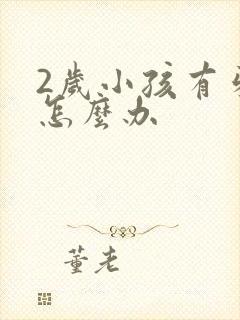 2歲小孩有
怎麼办
董老